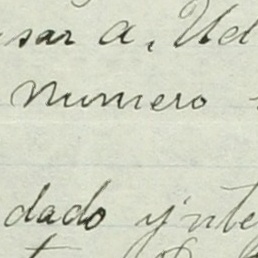 sar a. Ud
numero
dado ynte